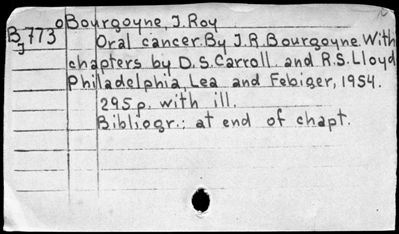 oBourgoyne, J. Roy
B773
J
Oral cancer. By J.R. Bourgoyne. With
chapters by D.S. Carroll. and R.S. Lloyd
Philadelphia, Lea and Febiger, 1954.
295 p. with ill.
Bibliogr.: at end of chapt.